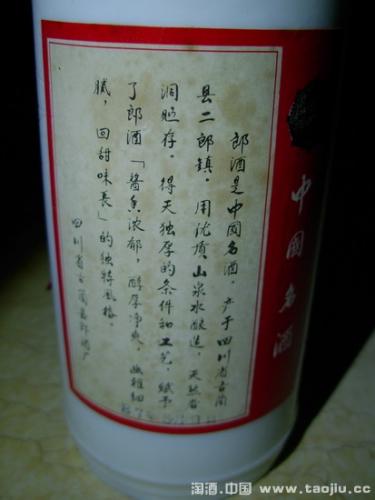 郎酒是中国名酒。产于四川省古蔺
县二郎镇。用优质山泉水酿造，天然岩
洞贮存。得天独厚的条件和工艺，赋予
了郎酒「酱香浓郁，醇厚净爽，幽雅细
腻，回甜味长」的独特風格。
四川省古蔺县郎酒厂
中國名酒
淘酒.中国 www.taojiu.cc